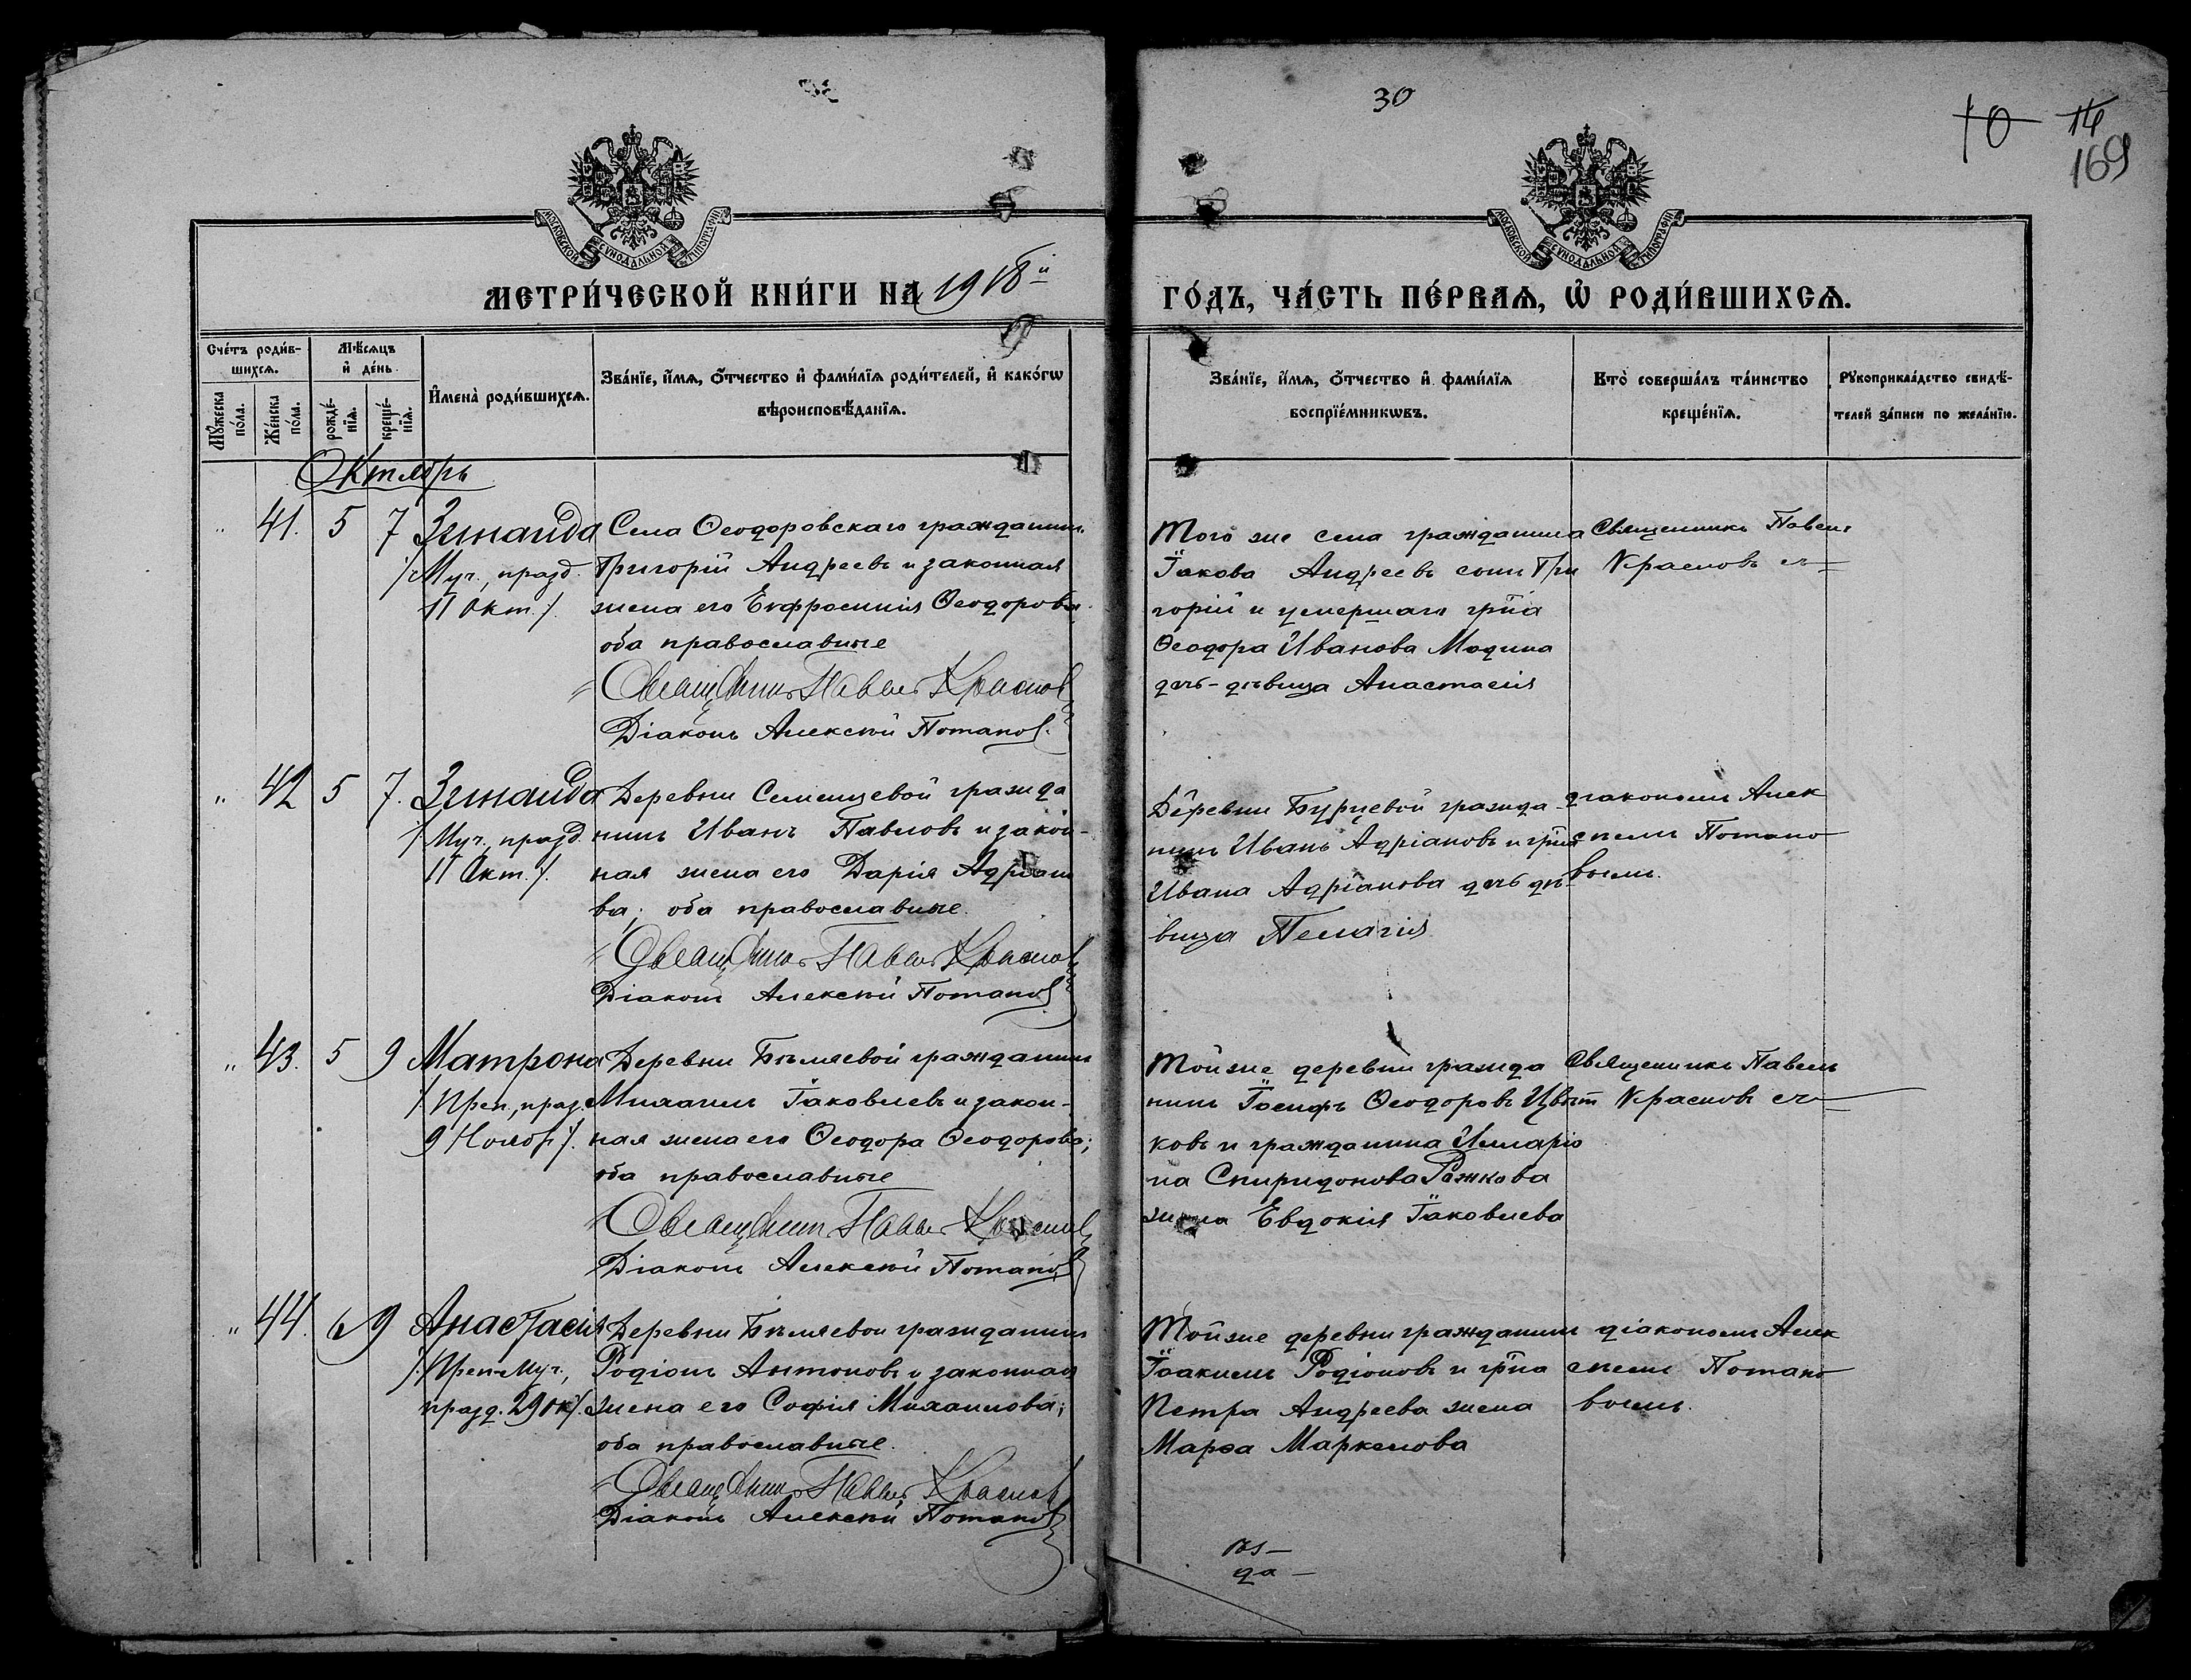 30
10 14
169
МОСКОВСКОЙ СѴНОДАЛЬНОЙ ТИПОГРАФІИ
МОСКОВСКОЙ СѴНОДАЛЬНОЙ ТИПОГРАФІИ
МЕТРИ́ЧЕСКОЙ КНИ́ГИ НА 1918й
ГО́ДЪ, ЧА́СТЬ ПЕ́РВАѦ, Ѡ҆ РОДИ́ВШИХСѦ.
Сче́тъ роди́в-
шихсѧ.
Мѣ́сѧцъ
и҆ де́нь.
Мꙋ́жеска по́ла.
Же́нска по́ла.
рожде́-нїѧ.
креще́-нїѧ.
И҆мена̀ роди́вшихсѧ.
Зва́нїе, и҆́мѧ, ѻ҆́тчество и҆ фами́лїѧ роди́телей, и҆ како́гѡ
вѣроисповѣ́данїѧ.
Зва́нїе, и҆́мѧ, ѻ҆́тчество и҆ фами́лїѧ
воспрїе́мникѡвъ.
Кто̀ соверша́лъ та́инство
креще́нїѧ.
Рꙋкоприкла́дство свидѣ́-
телей за́писи по жела́нїю.
Октябрь
" 41. 5 7 Зинаида
/Муч., празд.
11 Окт./.
Села Ѳеодоровскаго гражданинъ
Григорій Андреевъ и законная
жена его Евфросинія Ѳеодорова
оба православные
Священникъ Павелъ Краснов
Діаконъ Алексѣй Потапов.
Того же села гражданина
Іакова Андреевъ сынъ Гри
горій и умершаго гр̃на
Ѳеодора Иванова Модина
дочь-дѣвица Анастасія
Священникъ Павелъ
Красновъ съ
" 42 5 7. Зинаида
/Муч., празд.
11 Окт./.
Деревни Семенцевой гражда
нинъ Иванъ Павловъ и закон-
ная жена его Дарія Адріано
ва; оба православные.
Священникъ Павелъ Краснов
Діаконъ Алексѣй Потапов
Деревни Бурцевой гражда
нинъ Иванъ Адріановъ и гр̃на
Ивана Адріанова дочь дѣ
вица Пелагія
діакономъ Алек
сѣемъ Потапо
вымъ.
" 43. 5 9 Матрона
/Преп., празд.
9 Ноябр/.
Деревни Бѣляевой гражданинъ
Михаилъ Іаковлевъ и закон-
ная жена его Ѳеодора Ѳеодорова;
оба православные
Священникъ Павелъ Краснов
Діаконъ Алексѣй Потапов
Той же деревни гражда
нинъ Іосифъ Ѳеодоровъ Цвѣт
ковъ и гражданина Илларіо
на Спиридонова Рожкова
жена Евдокія Іаковлева
Священникъ Павелъ
Красновъ съ
" 44. 6 9 Анастасія
/Преп-Муч.,
празд. 29 Ок/.
Деревни Бѣляевой гражданинъ
Родіонъ Антоновъ и законная
жена его Софія Михаилова;
оба православные.
Священникъ Павелъ Краснов
Діаконъ Алексѣй Потапов
Той же деревни гражданинъ
Іоакимъ Родіоновъ и гр̃на
Петра Андреева жена
Марѳа Маркелова
діакономъ Алек
сѣемъ Потапо
вымъ.